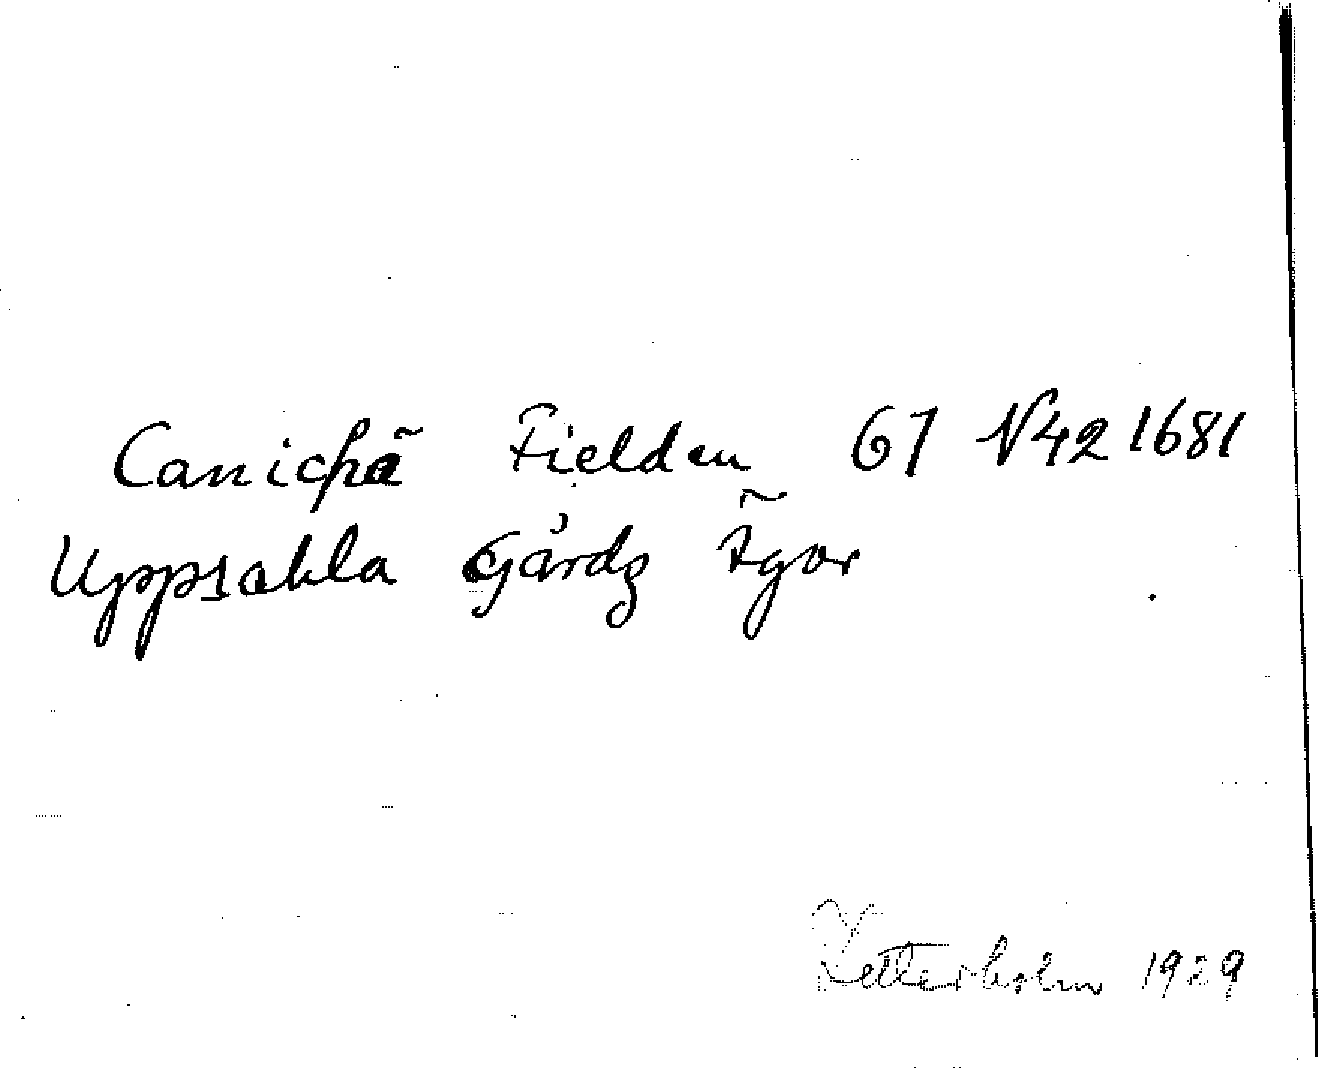 Canichã Fielden 67 N42 1681
Uppsahla Gårdz Ägor
Zetterholm 1929